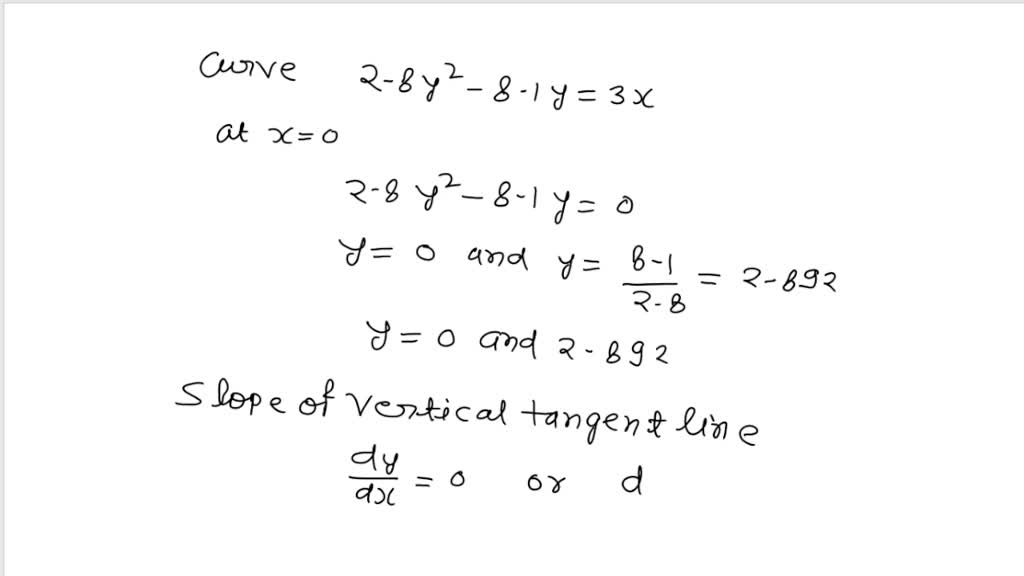 Curve 2-8y² - 8-1y = 3x
at x=0
2-8 y² - 8-1 y = 0
y = 0 and y = 8-1/2-8 = 2-892
y = 0 and 2-892
Slope of vertical tangent line
dy/dx = 0 or d